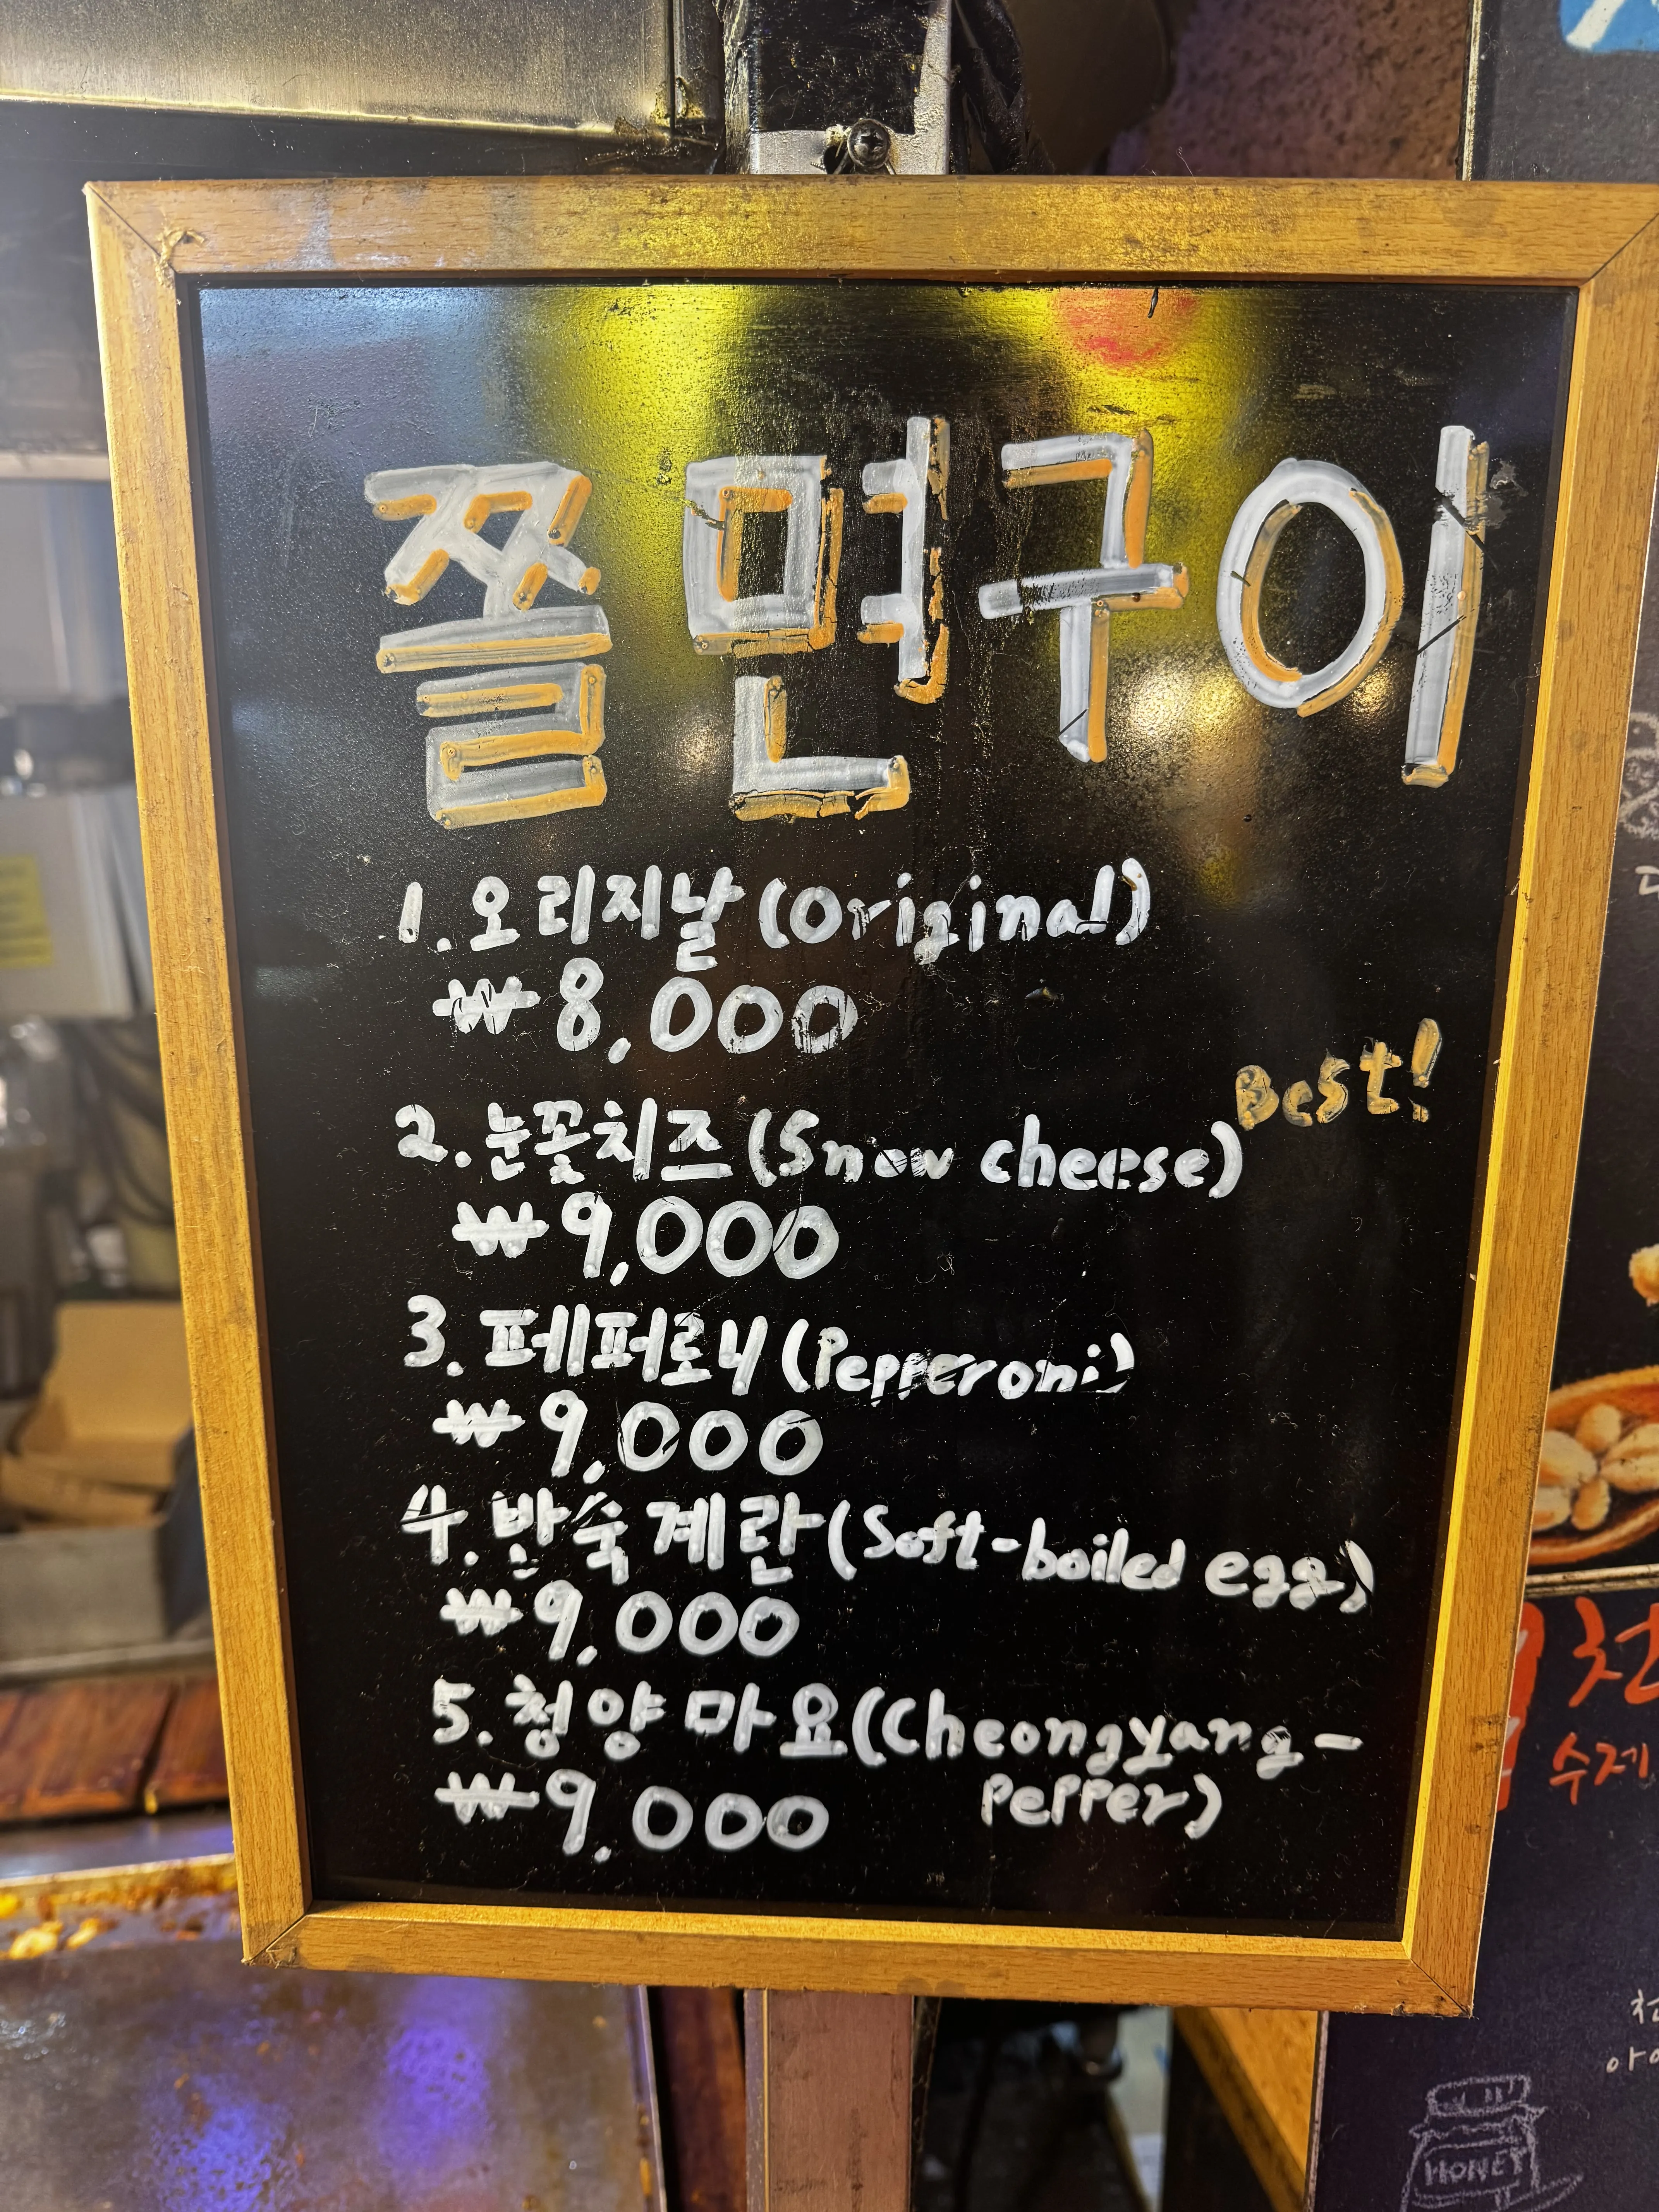 쫄면구이
1. 오리지날 (Original)
₩8,000
Best!
2. 눈꽃치즈 (Snow cheese)
₩9,000
3. 페퍼로니 (Pepperoni)
₩9,000
4. 반숙계란 (Soft-boiled egg)
₩9,000
5. 청양마요 (Cheongyang-
pepper)
₩9,000
수제
HONEY